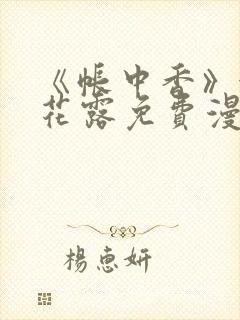 《帐中香》
花露免費漫
楊惠妍